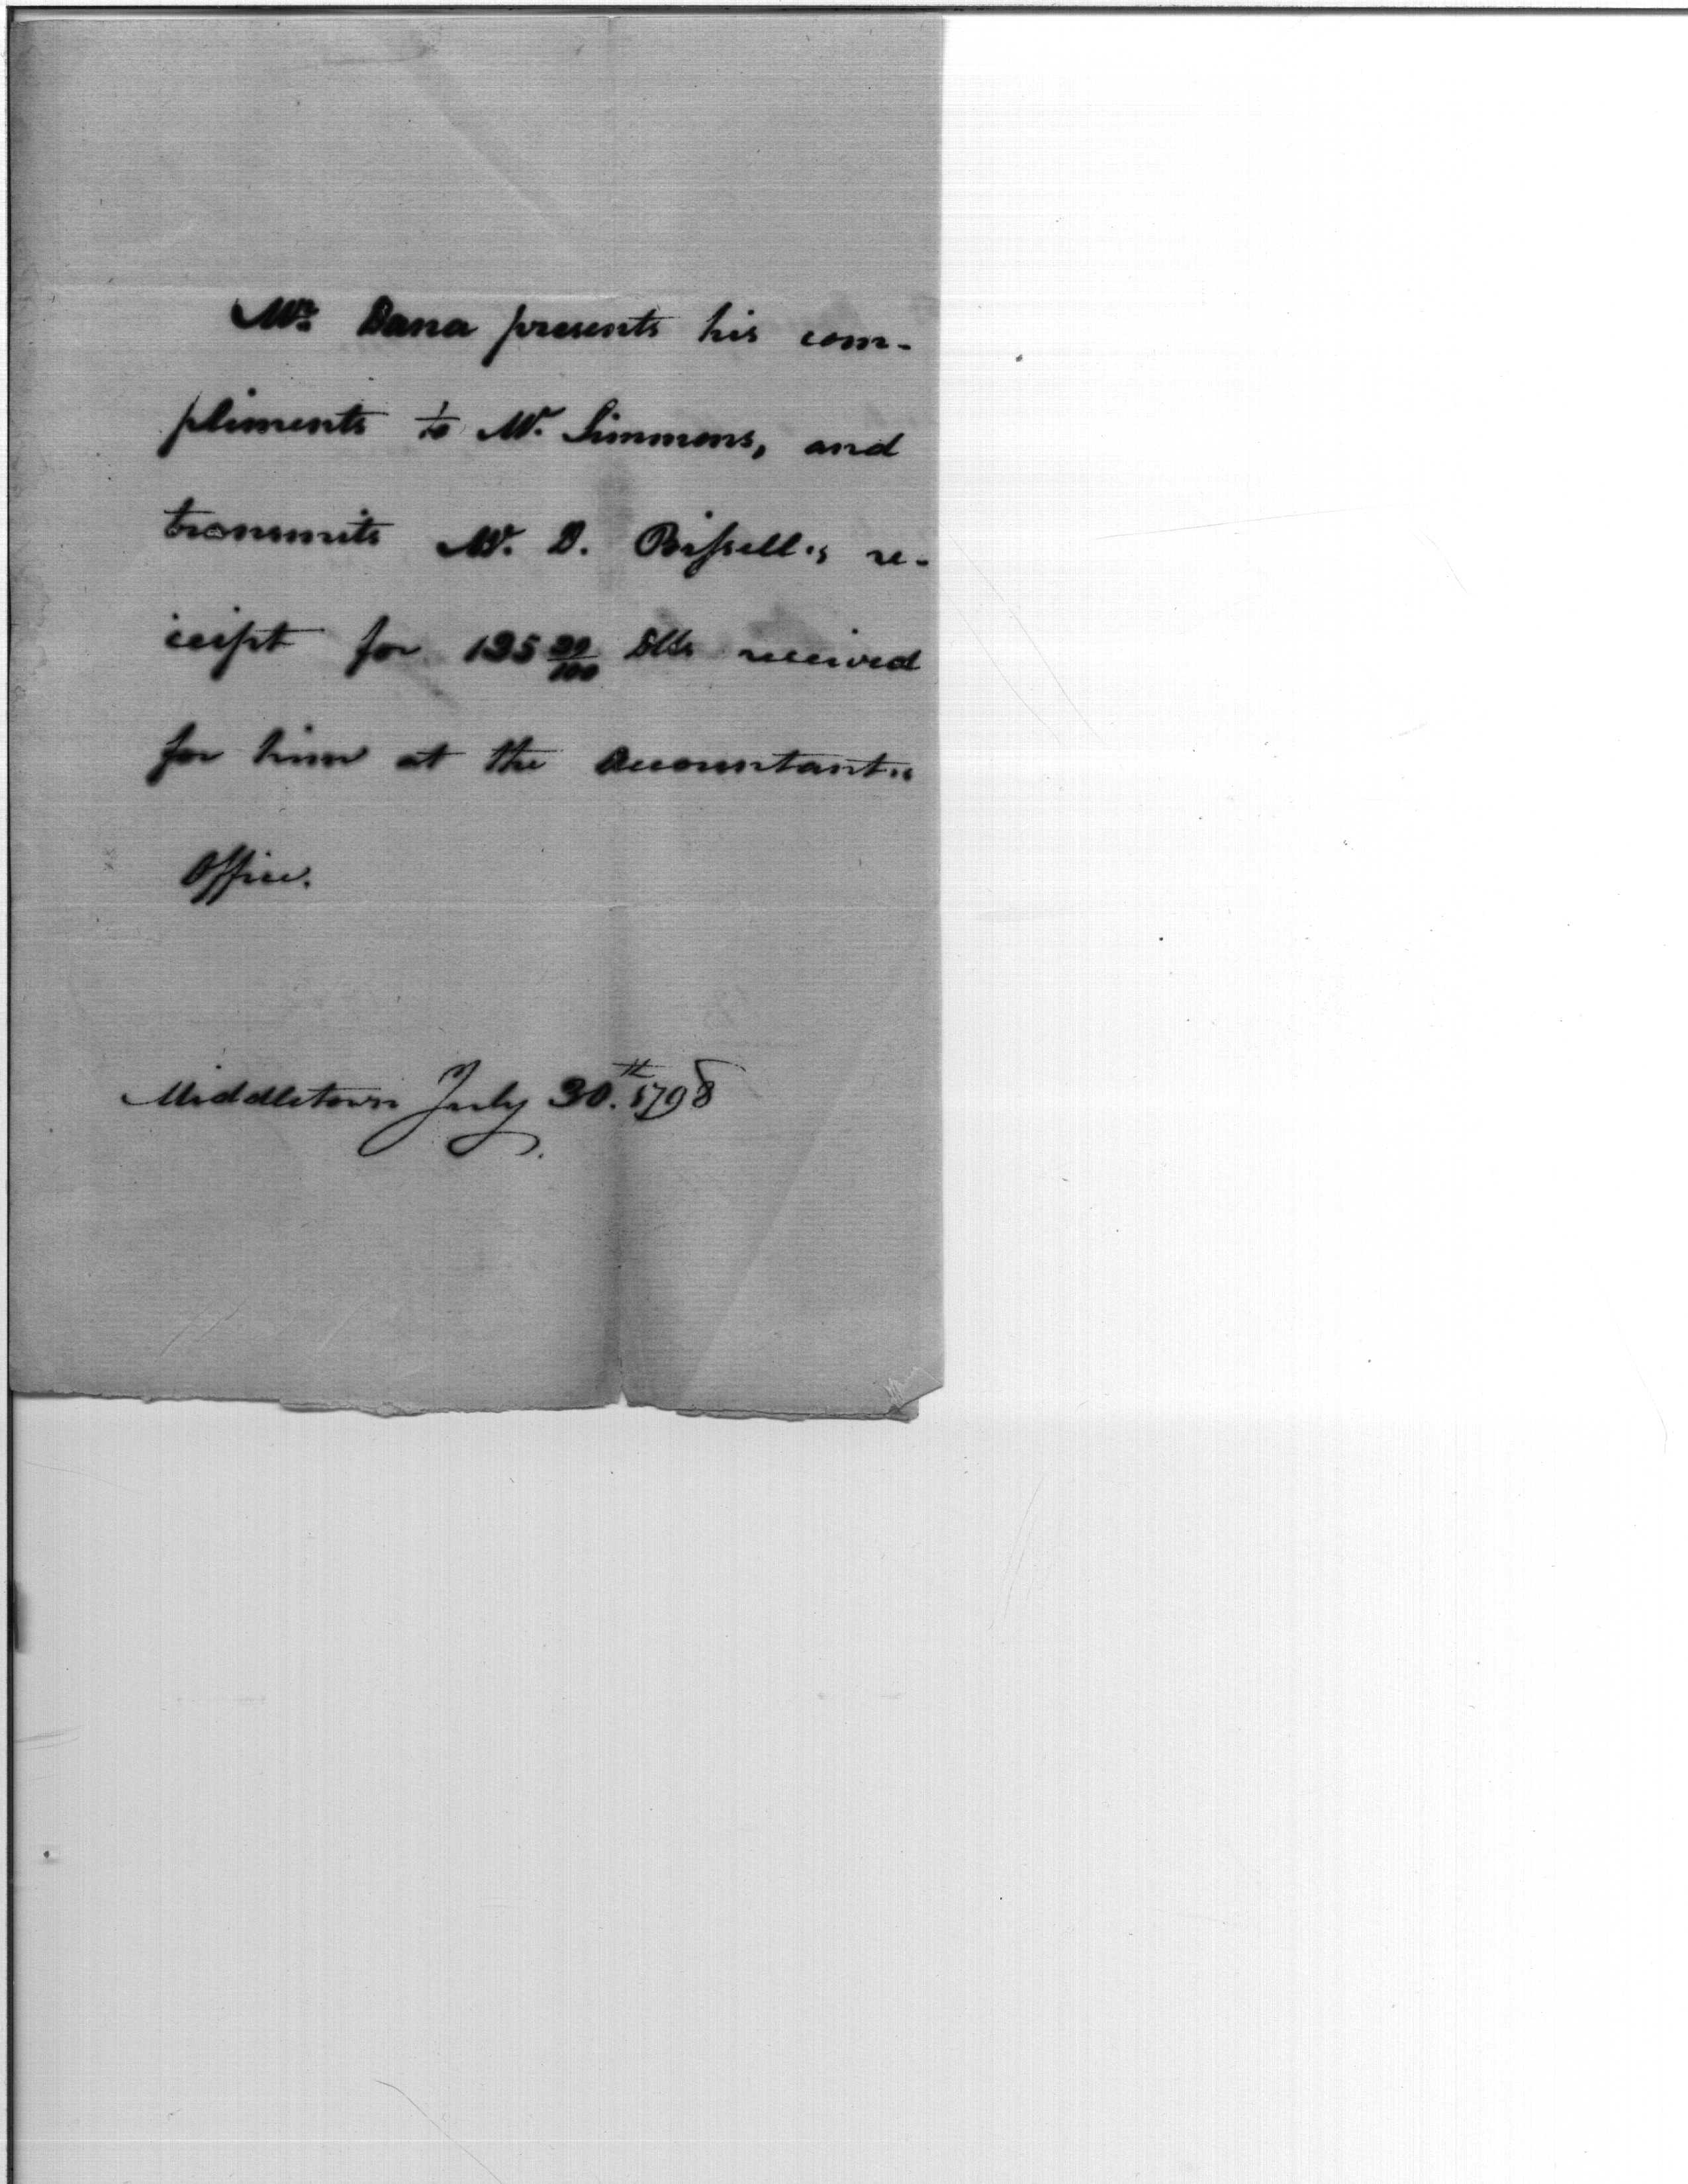 Mr. Dana presents his com-
pliments to Mr. Simmons, and
transmits Mr. D. Bissell's re-
ceipt for 135 39/100 Dlls received
for him at the Accountant's
Office.
Middletown July 30.th 1798